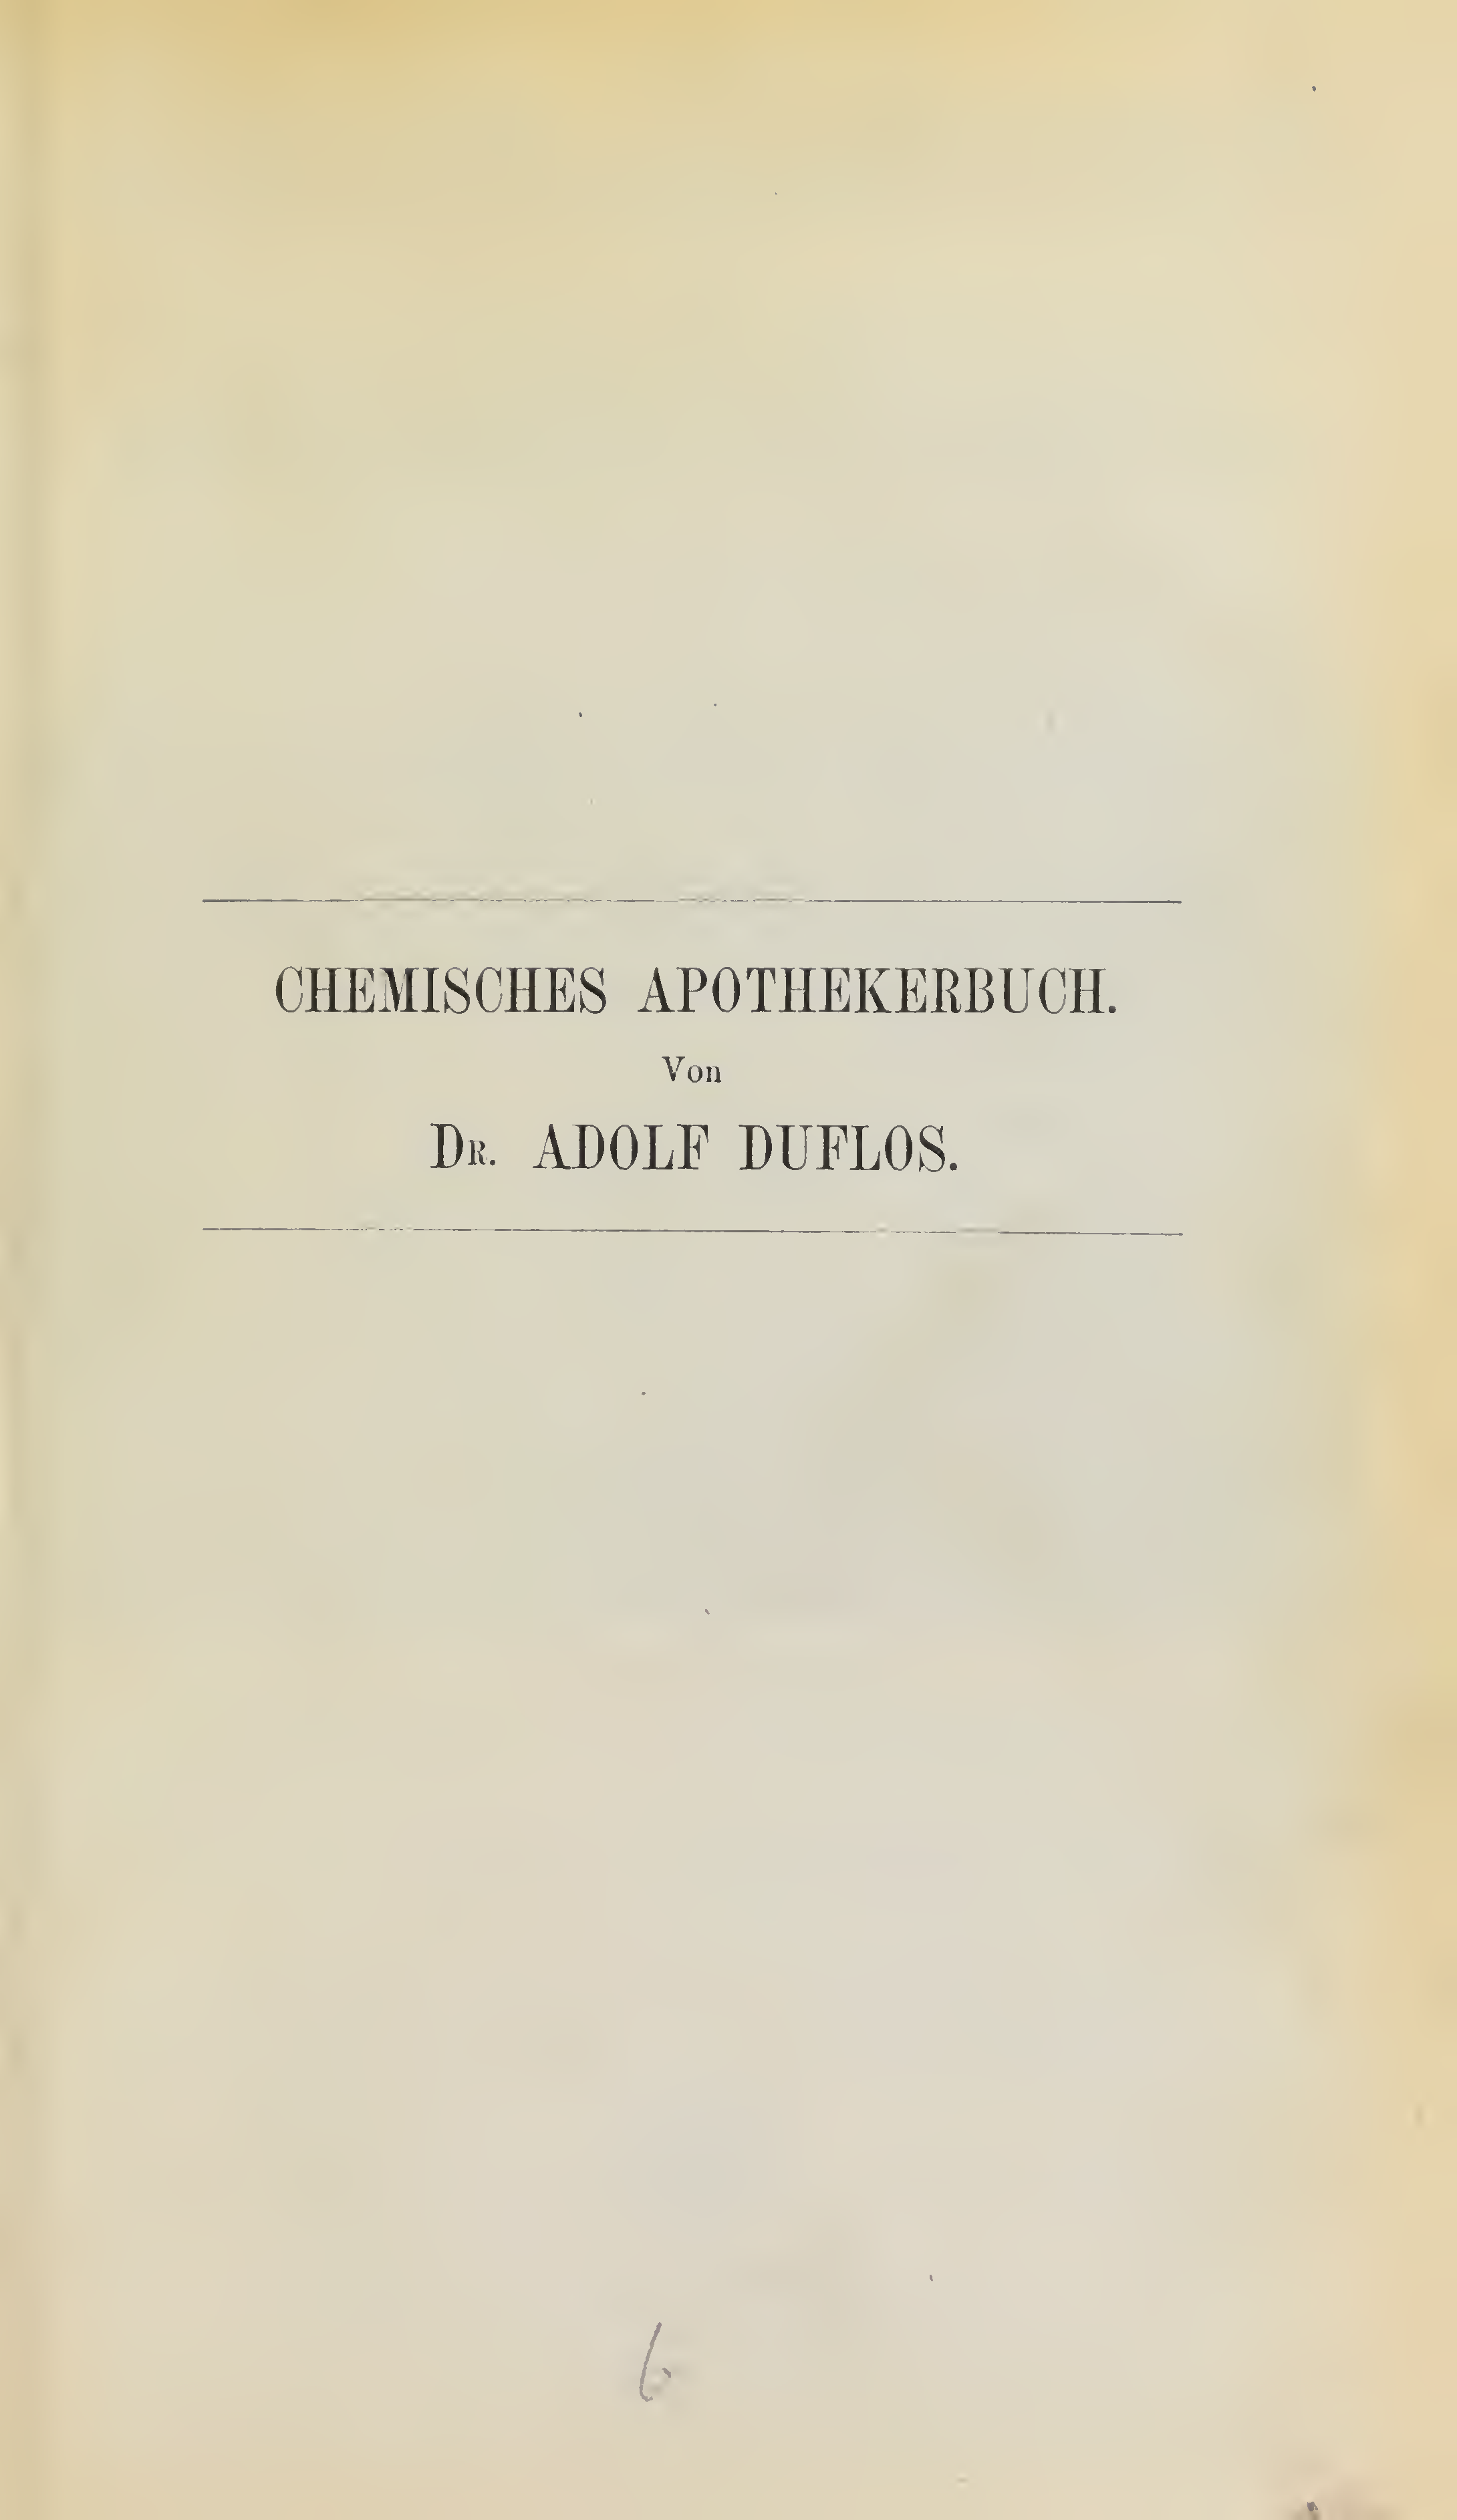 CHEMISCHES APOTHEKERBUCH.
Von
DR. ADOLF DUFLOS.